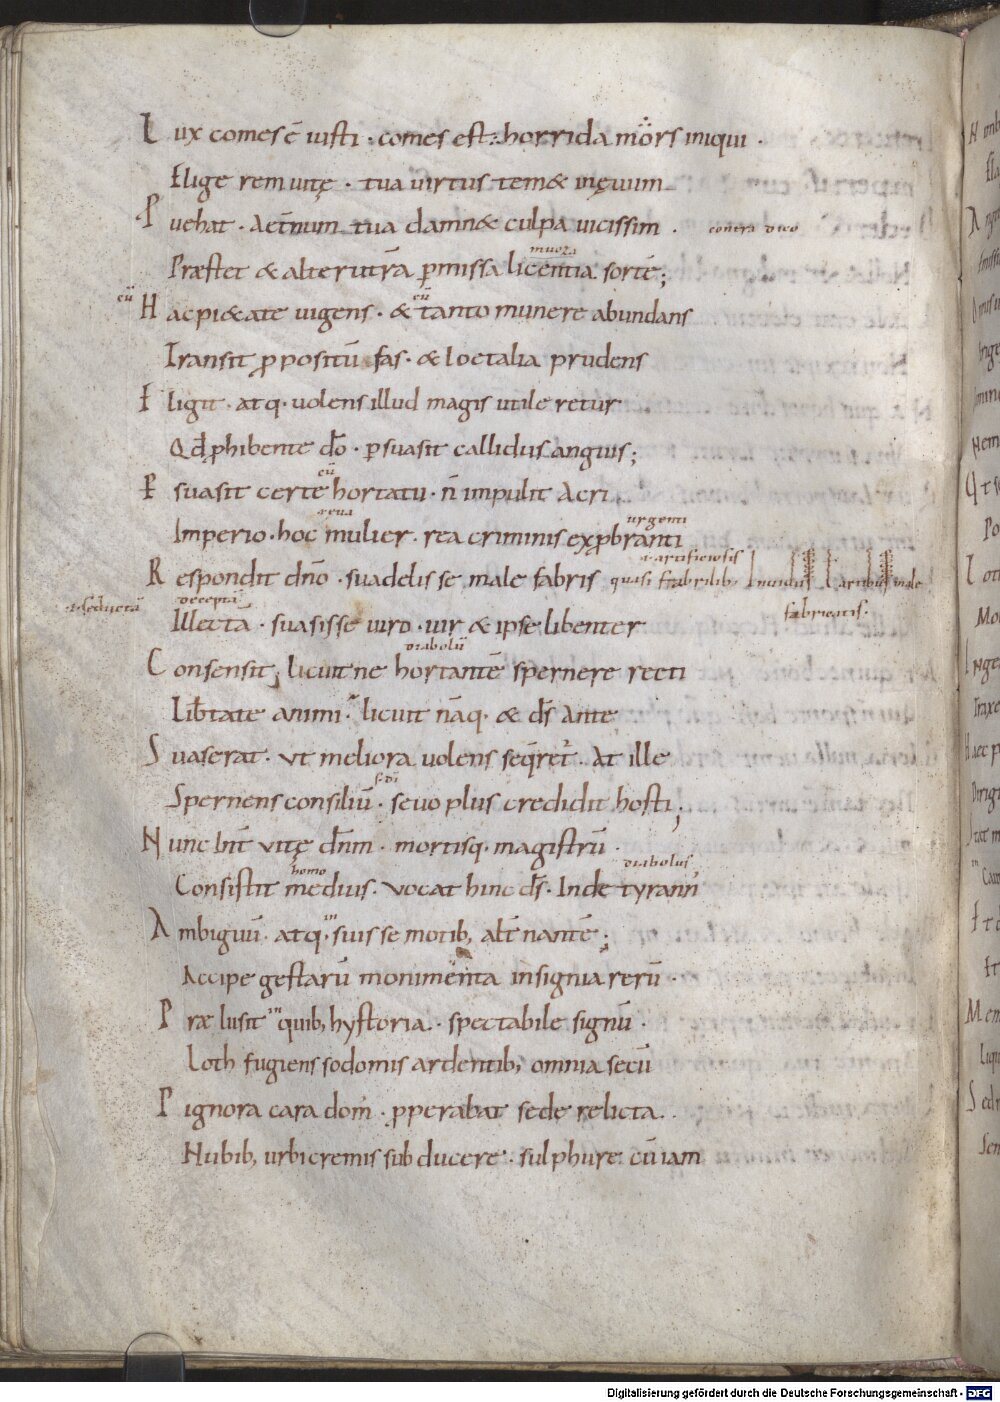 Lux comes ē iusti · comes est : horrida mors iniqui ·
Elige rem uitę · tua uirtus tem& inęuum
Puehat · Aet̄num tua damn& culpa uicissim · contra dico
Præstet & alterutrā p̱missa licentia sorte;
eū
Hac pi&ate uigens · & tanto munere abundans
eū
Transit p̱positū fas · & loetalia prudens
Eligit · atq· uolens illud magis utile retur
Qd̄ p̱hibente dō · p̱suasit callidus anguis;
P̱suasit certe hortatu · n̄ impulit Acri
eū
Imperio · hoc mulier · rea criminis exp̱branti
urgenti
Respondit dn̄o · suadelis se male fabris quasi male
artificiosis
fabricatis·
seductā
deceptā
Illectā · suasisse uiro · uir & ipse libenter
Consensit; licuit ne hortantē spernere recti
diabolū
Lib̄tate animi · licuit nāq· & dš Ante
Suaserat · Vt meliora uolens seq̄ret̄ · At ille
Spernens consiliū · sęuo plus credidit hosti;
s· dī
Nunc Int̄ Vitę dn̄m · mortisq· magistrū ·
Consistit medius · Vocat hinc dš · Inde tyrann'
homo
diabolus
Ambiguū · atq· suis se motib; alt̄nantē;
in
Accipe gestarū monimenta insignia rerū ·
Præ lusit quib; hystoria · spectabile signū ·
in
Loth fugiens sodomis ardentib; omnia secū
Pignora cara dom' · p̱perabat sede relicta ·
Nubib; urbicremis subducere · sulphure cū iam
Digitalisierung gefördert durch die Deutsche Forschungsgemeinschaft · DFG